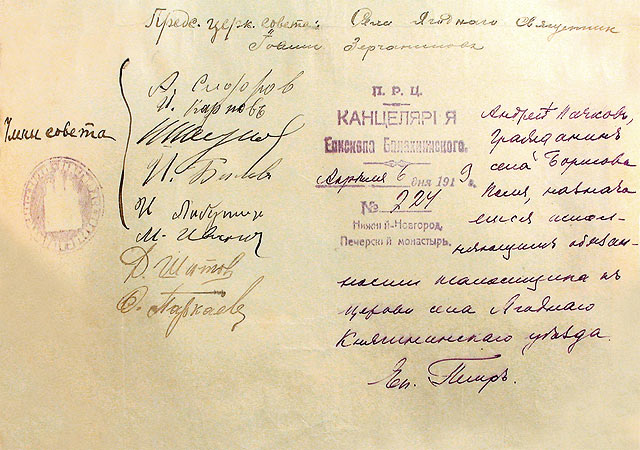 Предс. церк. совета: Села Ягоднаго Священник
Іоанн
Члены совета
А. Сидоров
И. Карповъ
И. Белов
И.
М.
Д. Шитов
П. Р. Ц.
КАНЦЕЛЯРІЯ
Епископа Балахнинскаго.
Апреля 6 дня 1919 г.
№ 224
Нижній-Новгород,
Печерскій монастырь.
Андрей Пачковъ,
гражданинъ
села Борисова
Поля, назнача
ется испол-
няющимъ обязан-
ности псаломщика къ
церкви села Ягоднаго
Княгининскаго уѣзда.
Еп. Петръ.